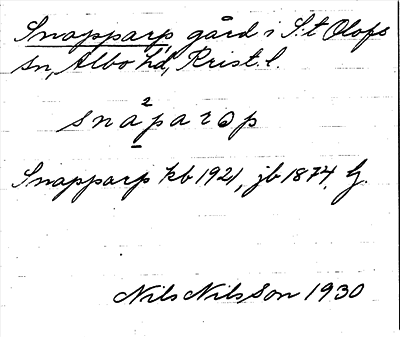 Snapparp gård i S:t Olofs
sn, Albo hd, Krist. l.
sna²parəp
Snapparp kb 1921, jb 1874,
Nils Nilsson 1930